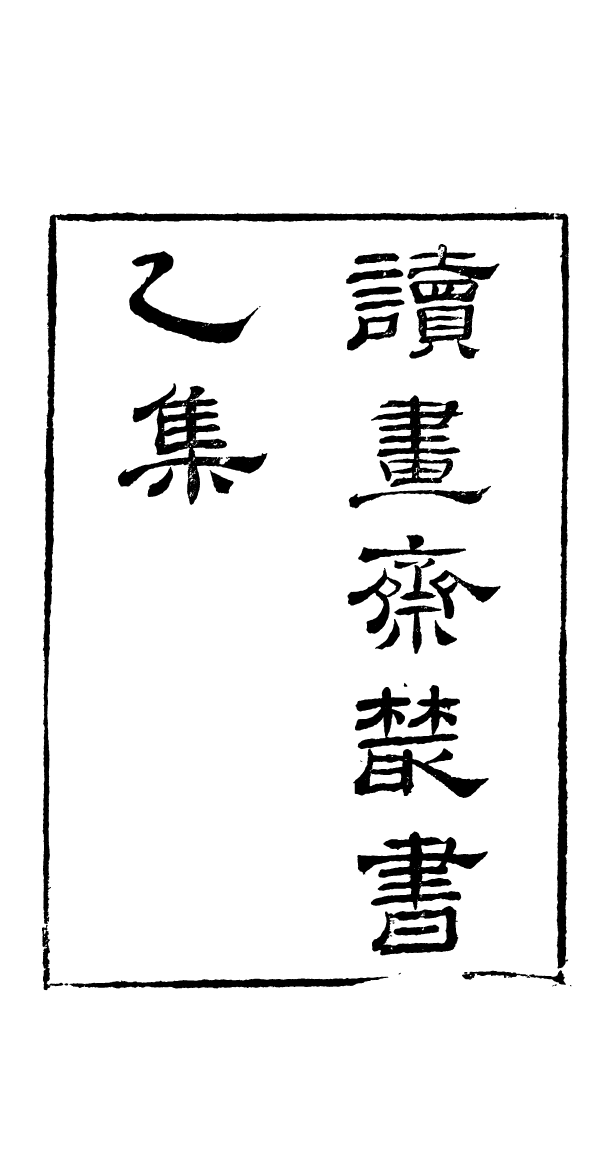 讀畫齋叢書
乙集